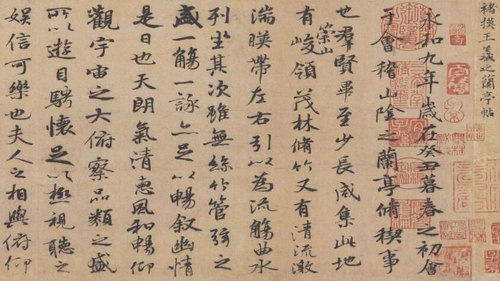 褚摸王羲之蘭亭帖
永和九年歲在癸丑暮春之初會
于會稽山陰之蘭亭脩稧事
也羣賢畢至少長咸集此地
有崇山峻領茂林脩竹又有清流激
湍暎帶左右引以為流觴曲水
列坐其次雖無絲竹管弦之
盛一觴一詠亦足以暢敘幽情
是日也天朗氣清惠風和暢仰
觀宇宙之大俯察品類之盛
所以遊目騁懷足以極視聽之
娛信可樂也夫人之相與俯仰